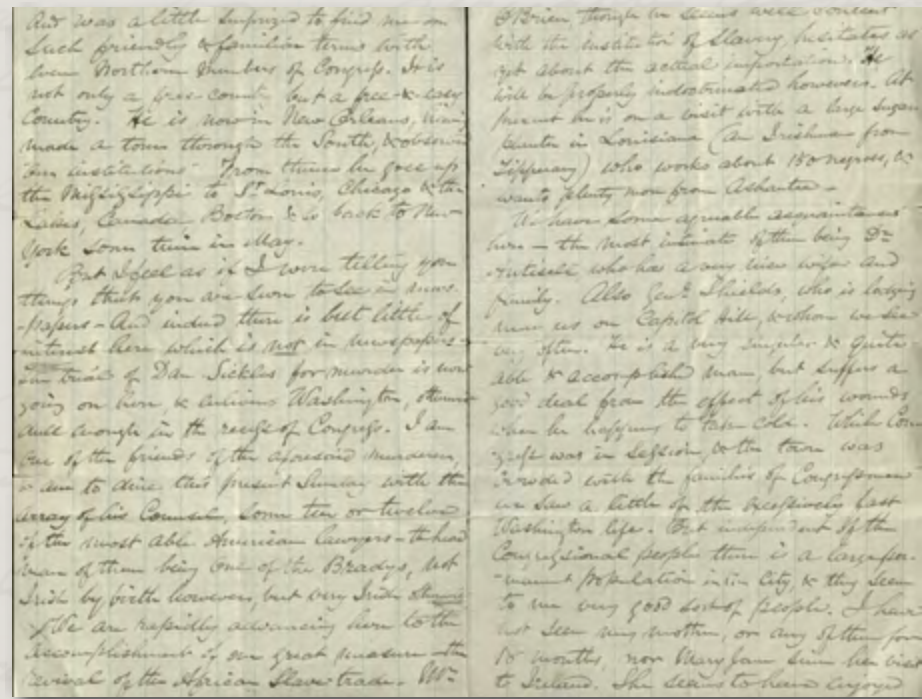 And was a little surprized to find me on
such friendly & familiar terms with
even Northern Members of Congress. It is
not only a free county but a free & easy
Country. He is now in New Orleans, having
made a tour through the South, & observing
our institutions. From there he goes up
the Mississippi to St. Louis, Chicago & the
Lakes, Canada, Boston & so back to New-
York some time in May.
But I feel as if I were telling you
things that you are sure to see in news
-papers - And indeed there is but little of
interest here which is not in newspapers -
trial of Dan Sickles for murder is now
going on here, & enlivens Washington, otherwise
dull enough in the recess of Congress. I am
one of the friends of the aforesaid murderer,
& am to dine this present Sunday with the
array of his Counsel, some ten or twelve
of the most able American lawyers - the head
man of them being one of the Bradys, not
Irish by birth however, but very Irish
We are rapidly advancing here to the
accomplishment of our great measure - the
revival of the African Slave trade. Mr.
O'Brien, though he seems well content
with the institution of Slavery, hesitates as
yet about the actual importation. He
will be properly indoctrinated however. At
present he is on a visit with a large Sugar
planter in Louisiana (an Irishman from
Tipperary) who works about 150 negroes, &
wants plenty more from Ashantee -
We have some agreeable acquaintances
here - the most intimate of them being Dr.
Antisell, who has a very nice wife and
family. Also Genl. Shields, who is lodging
near us on Capitol Hill, & whom we see
very often. He is a very singular & quite
able & accomplished man, but suffers a
good deal from the effect of his wounds
when he happens to take cold. While Con
gress was in Session, & the town was
crowded with the families of Congressmen
we saw a little of the excessively fast
Washington life. But independent of the
Congressional people there is a large per
-manent population in the City, & they seem
to me very good sort of people. I have
not seen my mother, or any of them for
18 months, nor Mary Jane since her visit
to Ireland. She seems to have enjoyed